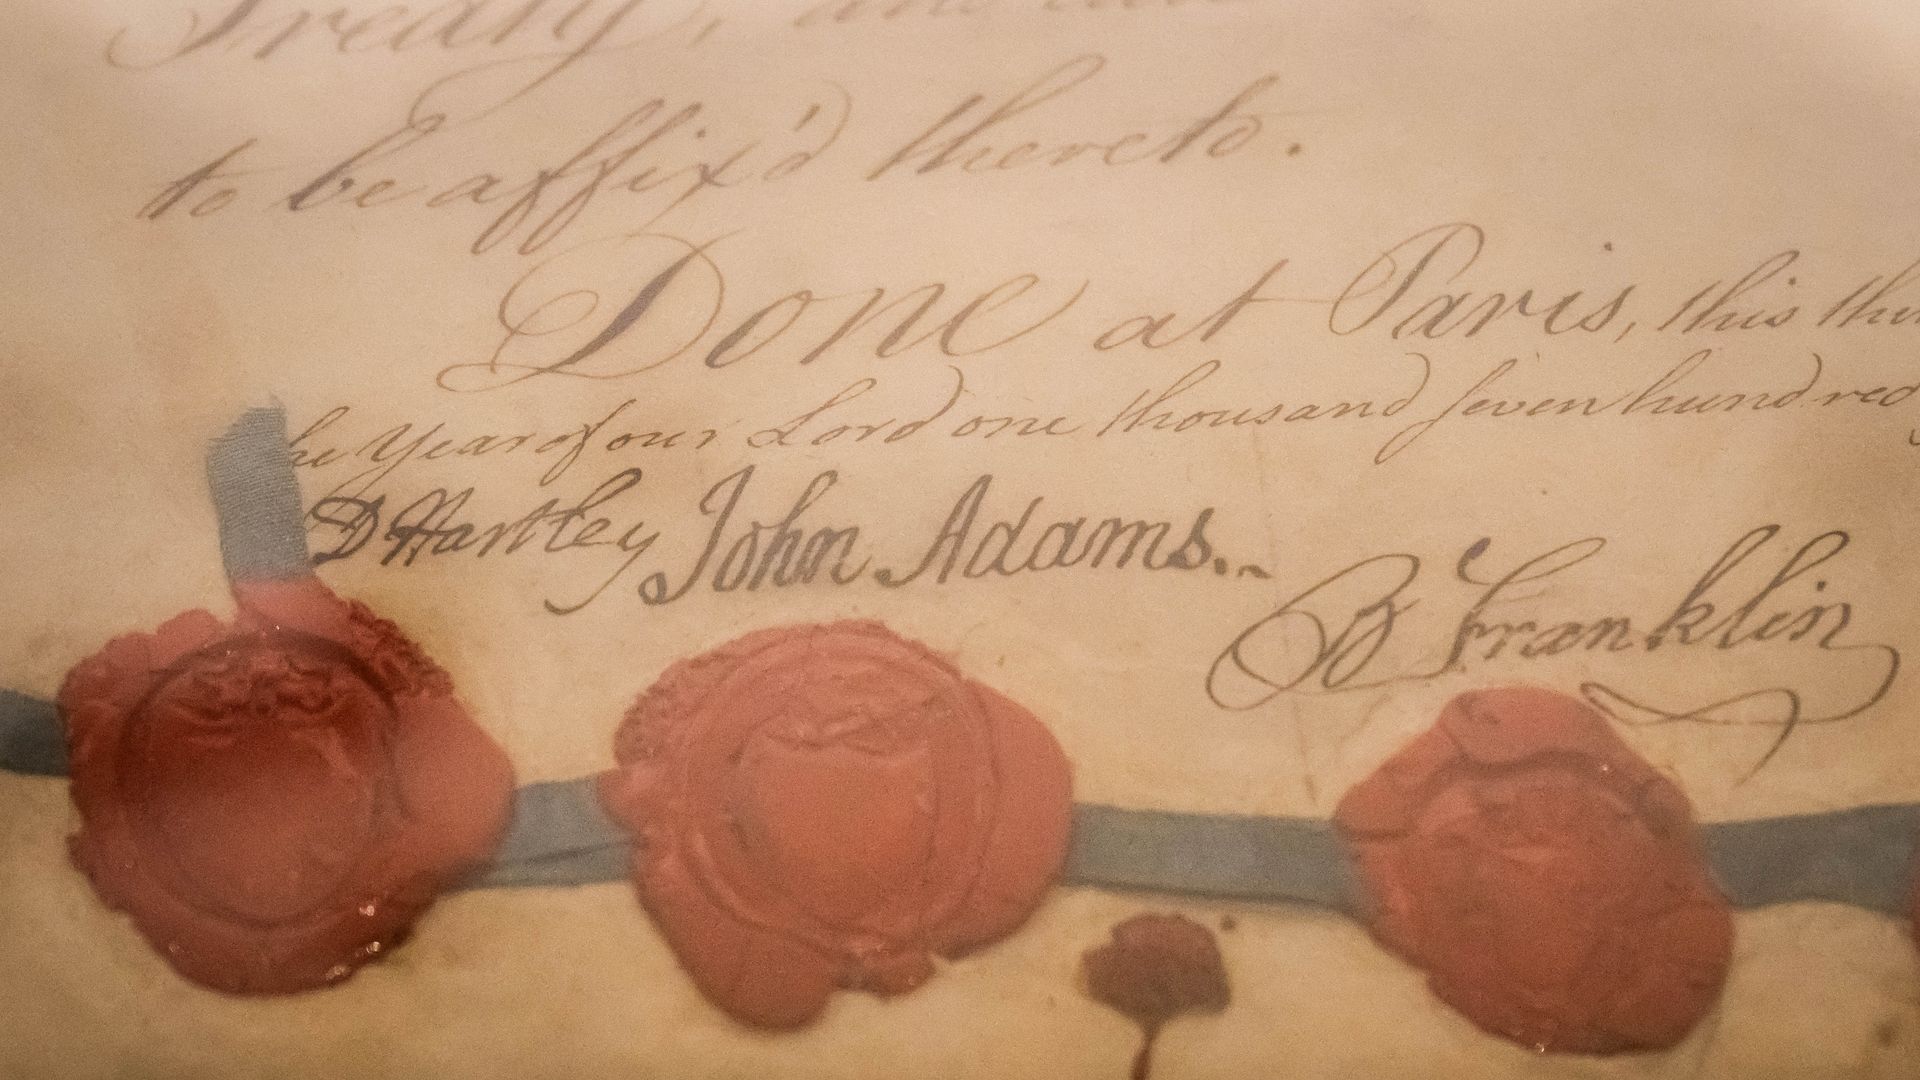 Treaty, and
to be affix'd thereto.
Done at Paris, this
he Year of our Lord one thousand seven hundred
D Hartley John Adams.
B Franklin